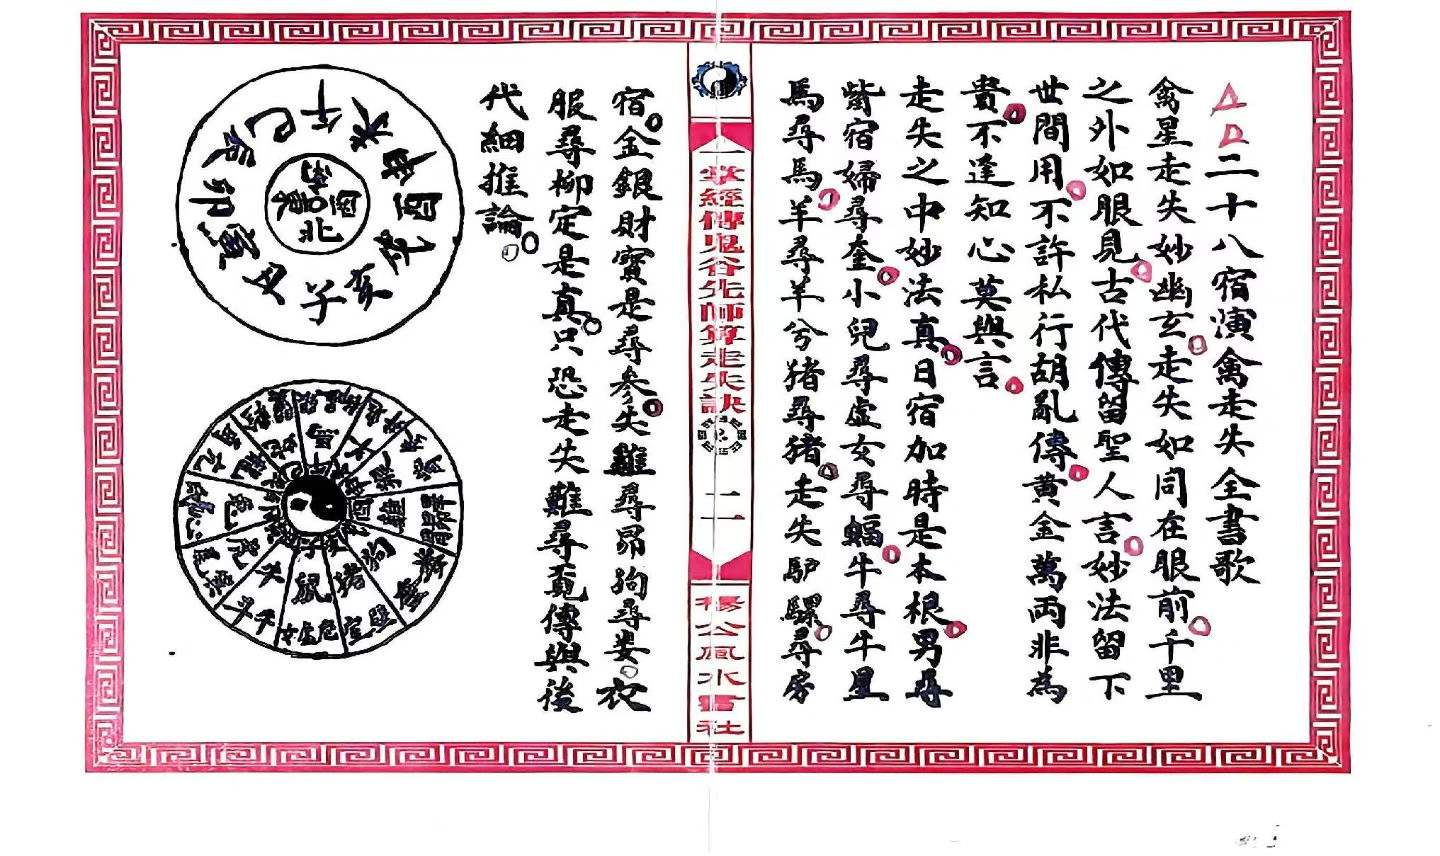 二十八宿演禽走失全書歌
禽星走失妙幽玄走失如同在眼前千里
之外如眼見古代傳留聖人言妙法留下
世間用不許私行胡亂傳黃金萬兩非為
貴不逢知心莫與言
走失之中妙法真日宿加時是本根男尋
觜宿婦尋奎小兒尋虛女尋蝠牛尋牛星
馬尋馬羊尋羊兮猪尋猪走失驴騾尋房
一掌經傳鬼谷先師算走失訣
二一
楊公風水書社
宿金銀財寶是尋參失雞尋昴狗尋婁衣
服尋柳定是真只恐走失難尋覓傳與後
代細推論
午
未
申
酉
戌
亥
子
丑
寅
卯
辰
巳
北
西
鼠
猪
狗
雞
兔
虎
牛